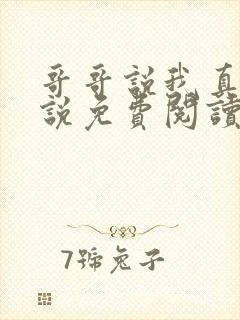 哥哥說我真
說免費閱讀
7號兔子